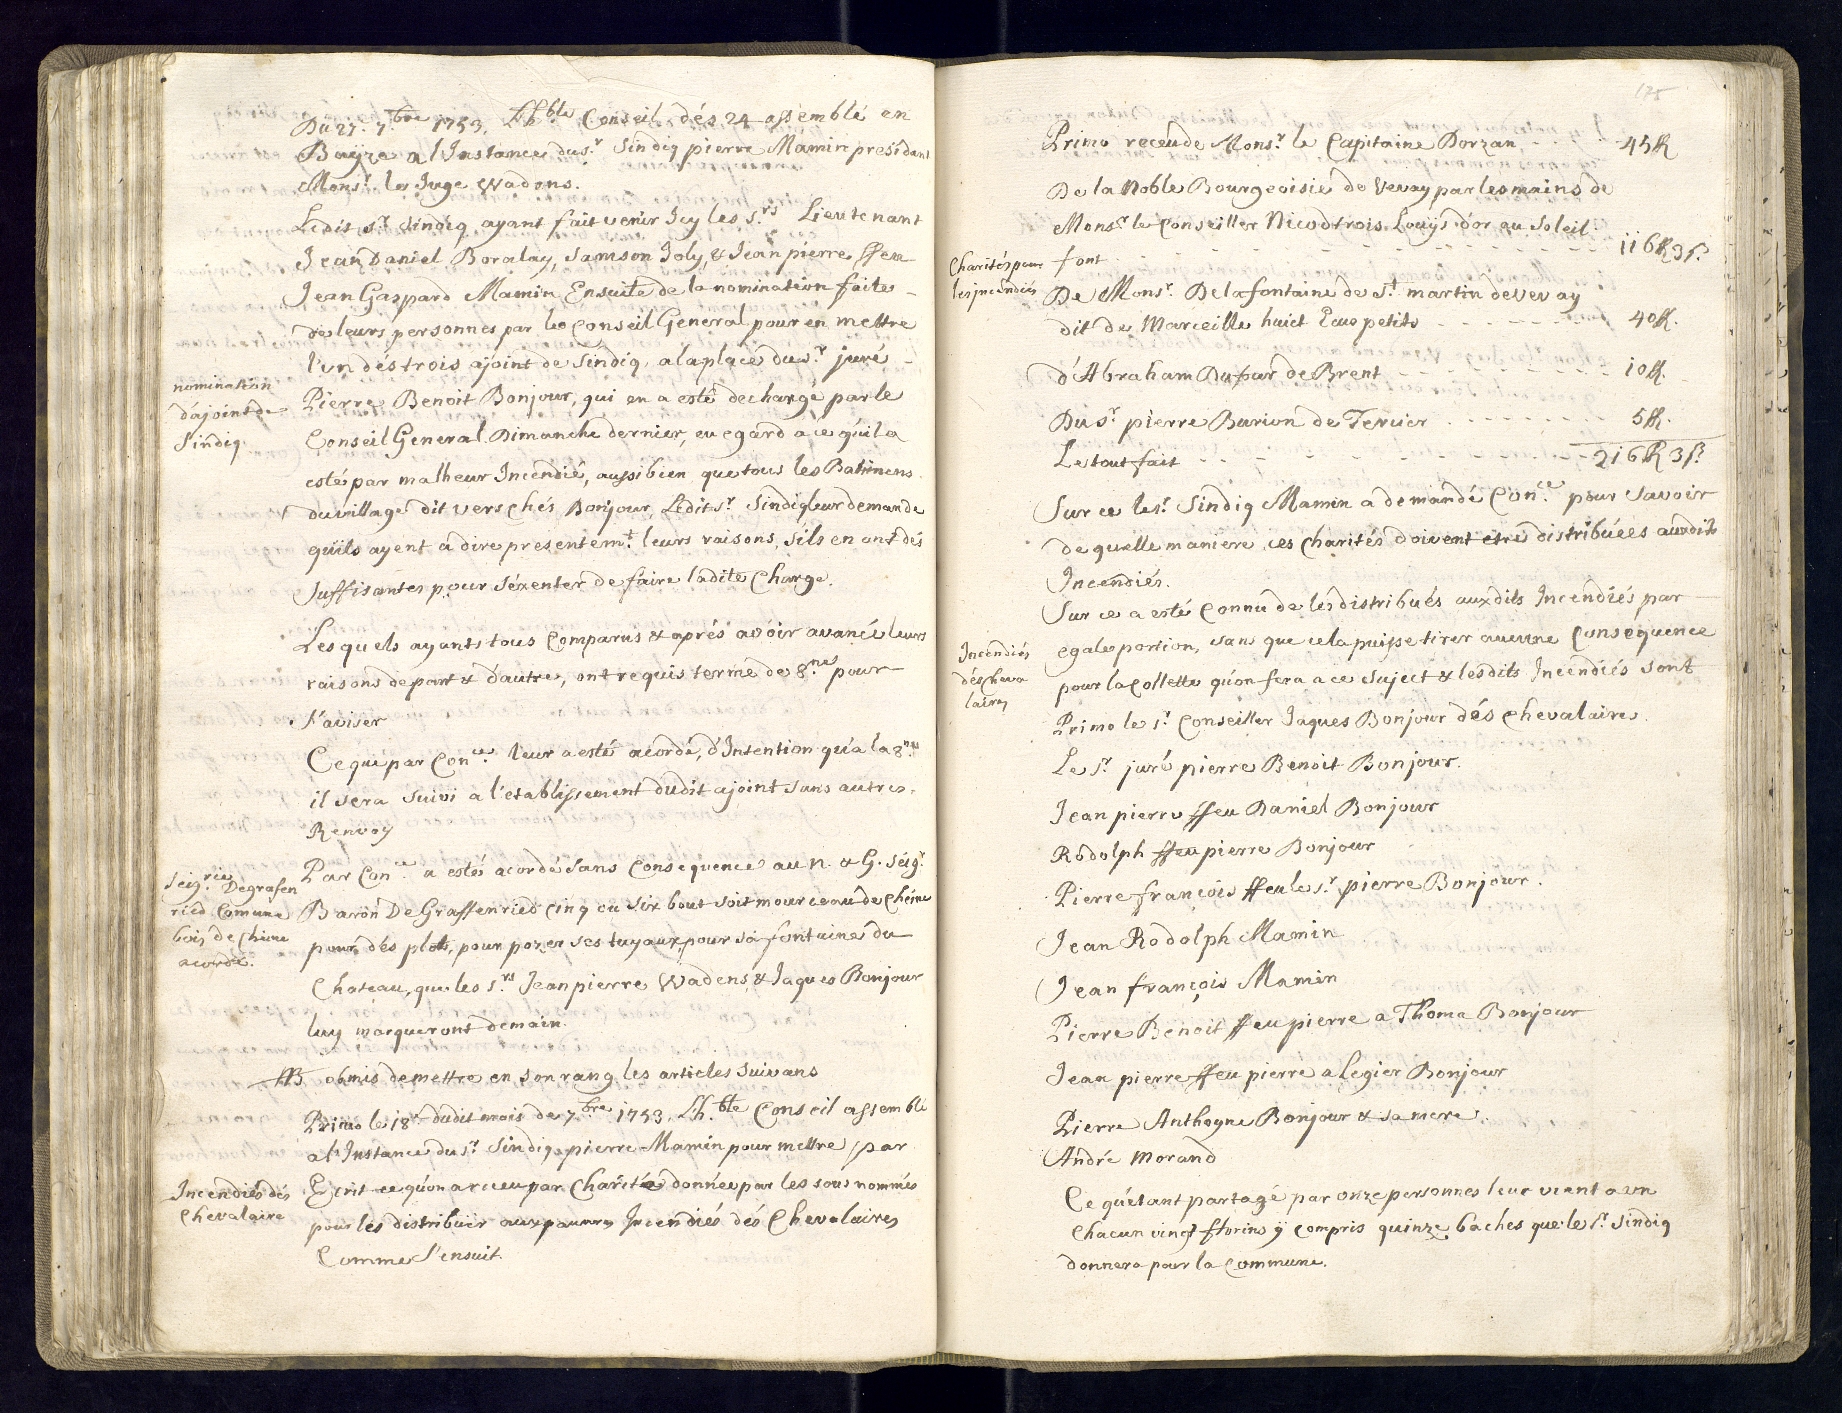 Du 27. 7.bre 1753, Lh.ble Conseil dés 24 assemblé en
Bayze a l'Instance du s.r Sindiq pierre Mamin presidant
Mons.r le Juge Wadens.
Ledit s.r Sindiq ayant fait venir Icy les s.rs Lieutenant
Jean Daniel Boralay, Samson Joly, & Jean pierre ffeu
Jean Gaspard Mamin Ensuite de la nomination faite
de leurs personnes par le Conseil General pour en mettre
l'un dés trois ajoint de Sindiq, a la place du s.r juré
nomination
d'ajoint de
Sindiq.
Pierre Benoit Bonjour, qui en a esté dechargé par le
Conseil General Dimanche dernier, eu egard a ce qu'il a
esté par malheur Incendié, aussi bien que tous les Batimens
du village dit vers chés Bonjour, Ledit s.r Sindiq leur demande
qu'ils ayent a dire presentem.t leurs raisons, s'ils en ont dés
suffisantes pour s'éxenter de faire ladite Charge.
Lesquels ayants tous Comparus & aprés avoir avancé leurs
raisons de part & d'autre, ont requis terme de 8.ne pour
s'aviser
Ce que par Con.ce leur a esté acordé, d'Intention qu'a la 8.ne
il sera suivi a l'etablissement dudit ajoint sans autre
Renvoy
Seig.rie Degrafen
ried Comune
bois de Chéne
acordé.
Par Con.ce a esté acordé sans Consequence au n. & G. Seig.r
Baron De Graffenried Cinq ou six bout soit mourceau de Chéne
pour dés plots, pour pozer ses tuyaux pour sa fontaine du
Chateau, que les s.rs Jean pierre Wadens & Jaques Bonjour
luy marqueront demain.
NB obmis de mettre en son rang les articles suivans
Primo le 18.e dudit mois de 7.bre 1753, Lh.ble Conseil assemblé
a l'Instance du s.r Sindiq pierre Mamin pour mettre par
Incendiés dés
Chevalaire
Ecrit ce qu'on a receu par Charité donnée par les sous nommés
pour les distribuër aux pauvres Incendiés dés Chevalaires
Comme s'ensuit.
175
Primo receu de Mons.r le Capitaine Dorzan 45 ff
De la Noble Bourgeoisie de Vevay par les mains de
Mons.r le Conseiller Nicod trois Louÿs d'or au Soleil
Charités pour
les incendiés
font 116 ff 3 s.
De Mons.r Delafontaine de S.t martin de vevay
dit de Marceille huict Ecus petits 40 ff.
d'Abraham Dufour de Brent 10 ff.
Du s.r pierre Burion de Fenier 5 ff.
Le tout fait 216 ff 3 s.
Sur ce le s.r Sindiq Mamin a demandé Con.ce pour savoir
de quelle maniere ces Charités doivent etre distribuées auxdits
Incendiés.
Sur ce a esté Connu de les distribués auxdits Incendiés par
egale portion, sans que cela puisse tirer aucune Consequence
Incendiés
dés Cheva
laires
pour la Collette qu'on fera a ce suject & lesdits Incendiés sont
Primo le s.r Conseiller Jaques Bonjour dés Chevalaires
Le s.r juré pierre Benoit Bonjour.
Jean pierre ffeu Daniel Bonjour
Rodolph ffeu pierre Bonjour
Pierre françois ffeu le s.r pierre Bonjour.
Jean Rodolph Mamin
Jean françois Mamin
Pierre Benoit ffeu pierre a Thoma Bonjour
Jean pierre ffeu pierre a Legier Bonjour
Pierre Anthoyne Bonjour & sa mere.
André Morand
Ce qu'etant partagé par onze personnes leur vient a un
Chacun vingt fforins ÿ compris quinze baches que le s.r Sindiq
donnera pour la Commune.